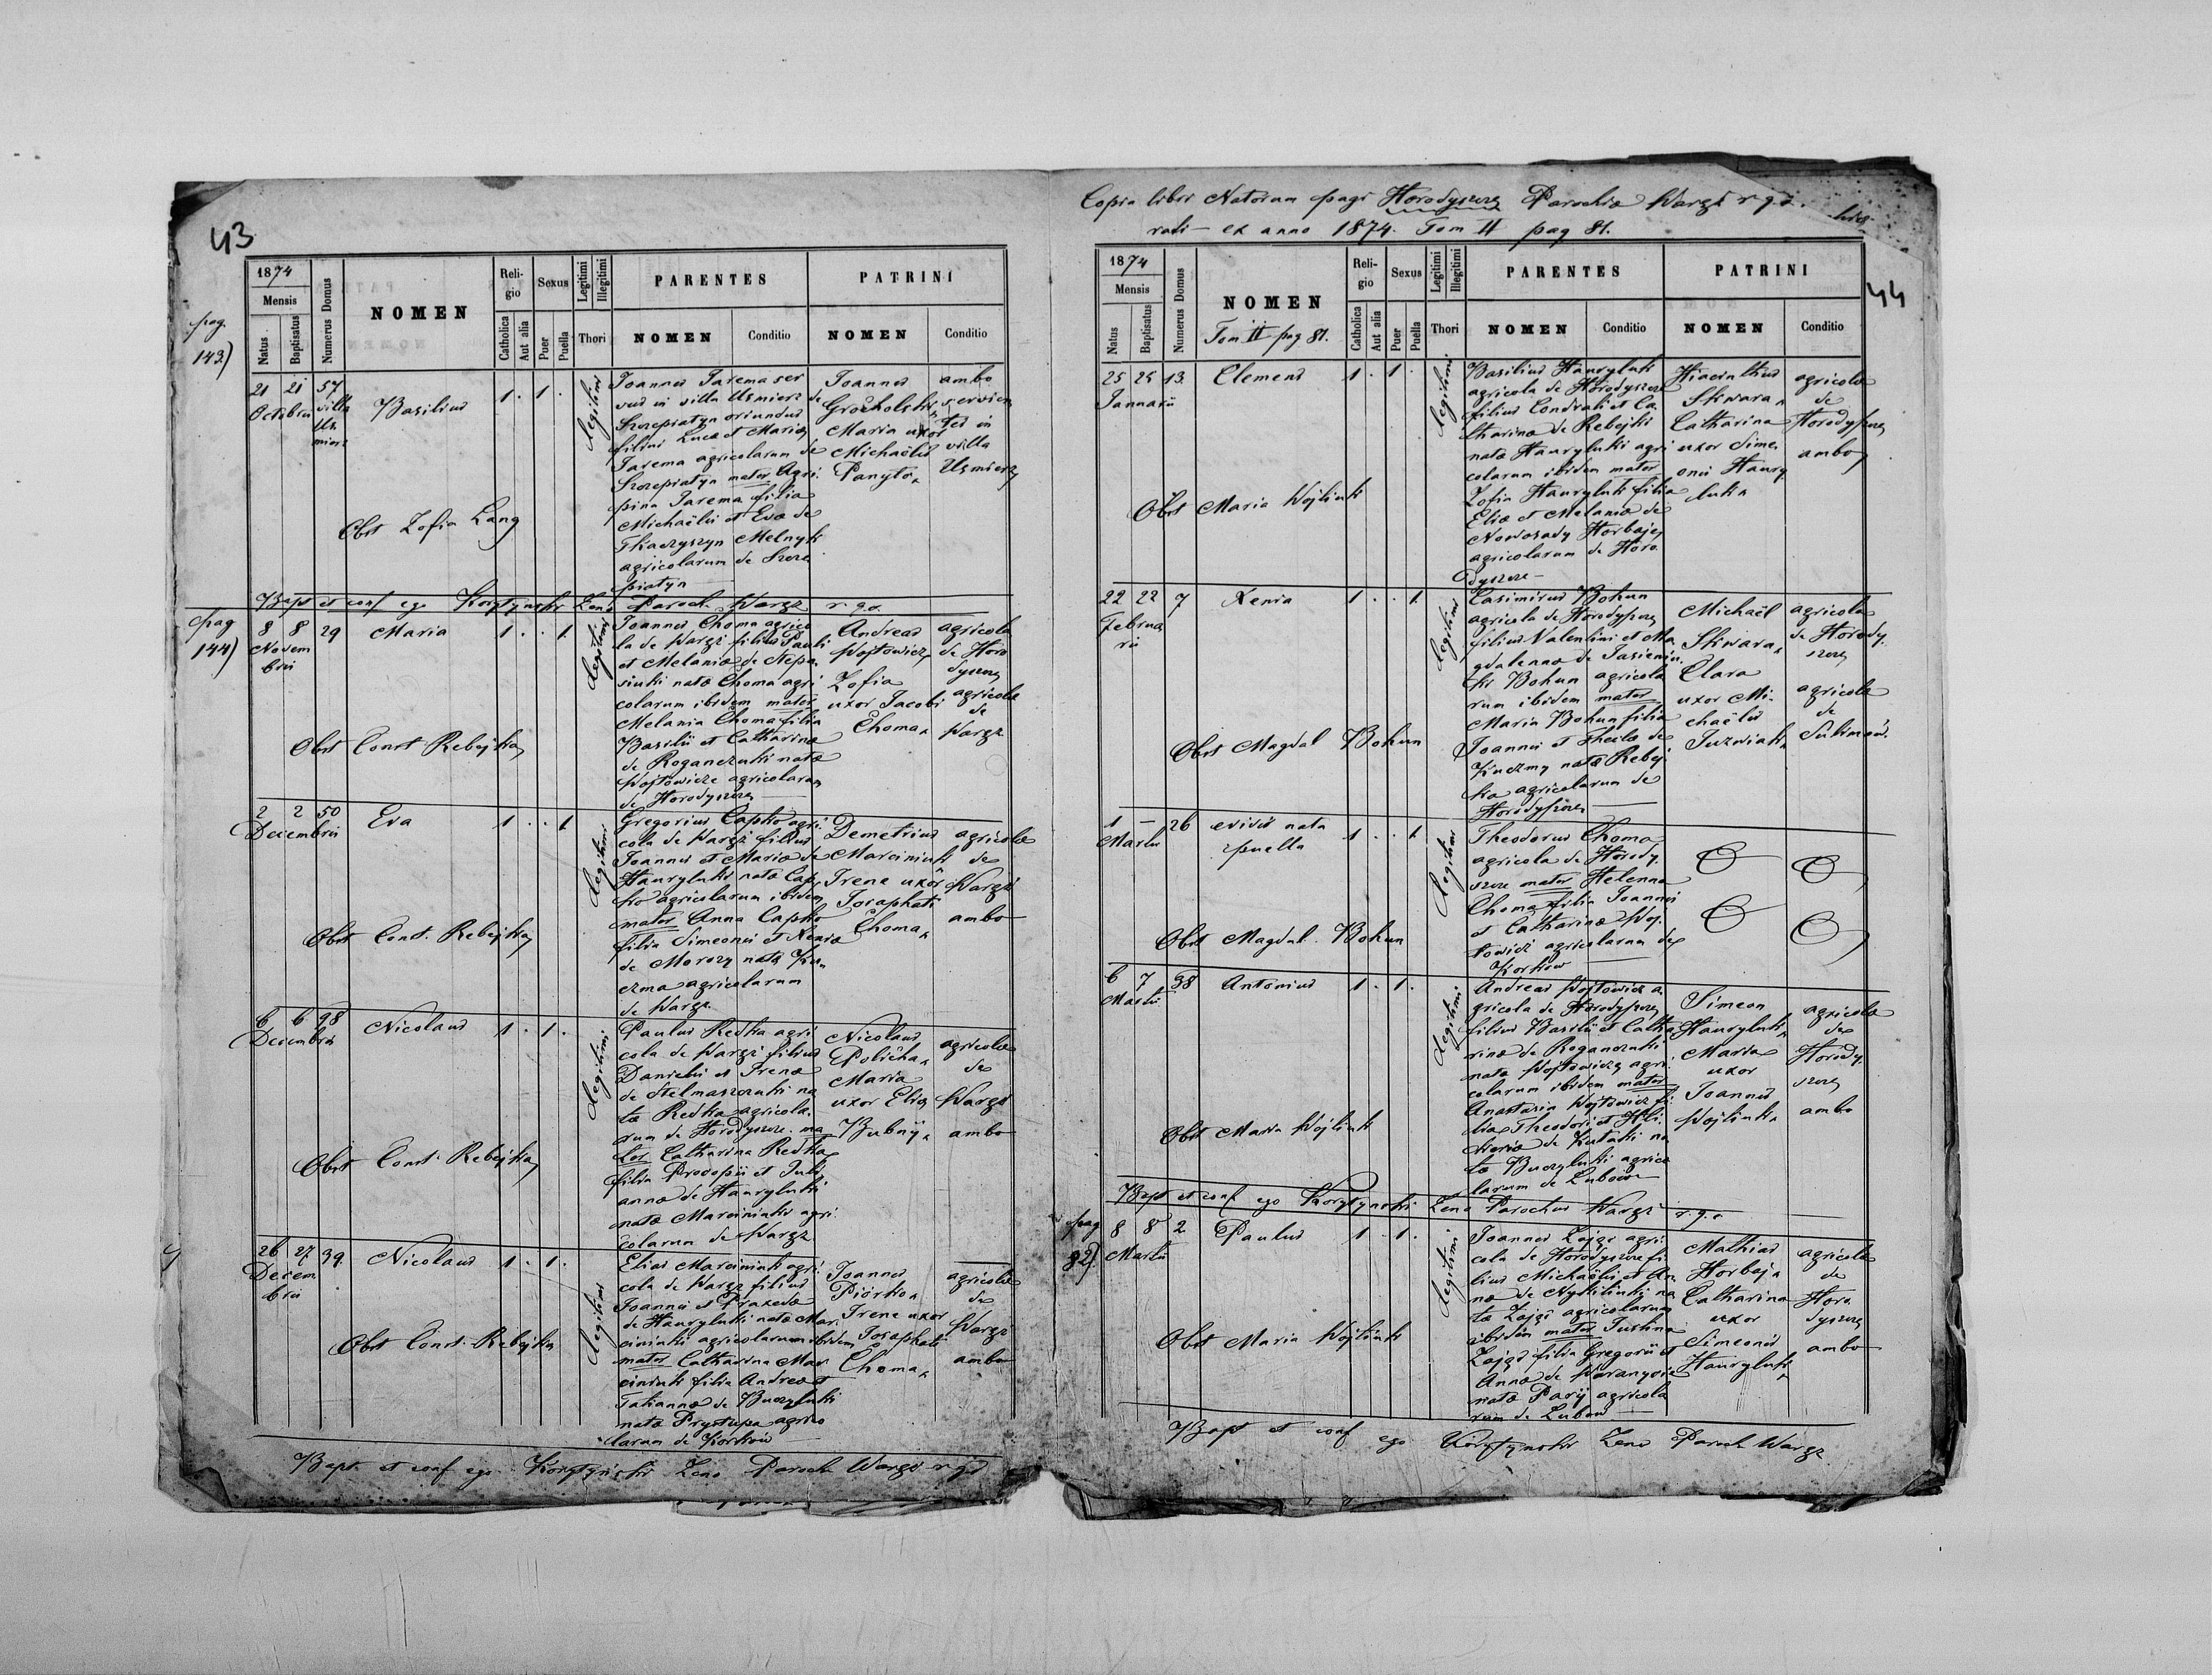 43
pag. 143)
1874
Mensis
Natus
Baptisatus
Numerus Domus
NOMEN
Religio
Catholica
Aut alia
Sexus
Puer
Puella
Legitimi
Illegitimi
Thori
PARENTES
NOMEN
Conditio
PATRINI
NOMEN
Conditio
21 21 57
Octobris villa Usmierz
Basilius
1 . 1 .
Legitimi
Joannes Jarema ser
vus in villa Usmierz de
Szczepiatyn oriundus
filius Lucæ et Mariæ
Jarema agricolarum de
Szczepiatyn mater Agri
pina Jarema filia
Michaëlis et Evæ de
Tkaczyszyn Melnyk
agricolarum de Szcze
piatyn
Joannes
Grocholski,
Maria uxor
Michaëlis
Panyto,
ambo
servien
tes in
villa
Usmierz
Obst Zofia Lang
Bapt et conf ego Korytyński Zeno Paroch Waręż r. g. c.
pag 144)
8 8 29
Novem
bris
Maria
1 . . 1
Legitimi
Joannes Choma agrico
la de Waręż filius Pauli
et Melaniæ de Nepa
siuki natæ Choma agri
colarum ibidem mater
Melania Choma filia
Basilii et Catharinæ
de Roganczuki natæ
Wojtowicz agricolarum
de Horodyszcze
Andreas
Wojtowicz
Zofia
uxor Jacobi
Choma,
agricola
de Horo
dyszcze
agricola
de
Waręż
Obst Const Rebejka
2 2 50
Decembris
Eva
1 . . 1
Legitimi
Gregorius Capko agri
cola de Waręż filius
Joannis et Mariæ de
Hauryluki natæ Cap
ko agricolarum ibidem
mater Anna Capko
filia Simeonis et Xeniæ
de Morozy natæ Kucz
ma agricolarum
de Waręż
Demetrius
Marciniuk
Irene uxor
Josaphati
Choma,
agricolæ
de
Waręż
ambo
Obst Const. Rebejka
6 6 98
Decembris
Nicolaus
1 . 1 .
Legitimi
Paulus Redka agri
cola de Waręż filius
Danielis et Irenæ
de Stelmaszczuki na
tæ Redka agricola
rum de Horodyszcze ma
ter Catharina Redka
filia Procopii et Juli
annæ de Hauryluki
natæ Marciniuki agri
colarum de Waręż
Nicolaus
Policha,
Maria
uxor Eliæ
Bubnij,
agricolæ
de
Waręż
ambo
Obst Const. Rebejka
26 27 39
Decem
bris
Nicolaus
1 . 1 .
Legitimi
Elias Marciniuk agri
cola de Waręż filius
Joannis et Praxedæ
de Hauryluki natæ Mar
ciniuki agricolarum ibidem
mater Catharina Mar
ciniuk filia Andreæ et
Tatiannæ de Buczyluki
natæ Prystupa agrico
larum de Korków
Joannes
Piórko,
Irene uxor
Josaphati
Choma,
agricolæ
de
Waręż
ambo
Obst Const. Rebejka
Bapt. et conf ego Korytyński Zeno Paroch Waręż r. g. c.
Copia libri Natorum pagi Horodyszcze Parochiæ Waręż r. g. c.
rati – ex anno 1874. Tom II pag 81.
44
1874
Mensis
Natus
Baptisatus
Numerus Domus
NOMEN
Tom II pag 81.
Religio
Catholica
Aut alia
Sexus
Puer
Puella
Legitimi
Illegitimi
Thori
PARENTES
NOMEN
Conditio
PATRINI
NOMEN
Conditio
25 25 13
Januarii
Clemens
1 . 1 .
Legitimi
Basilius Hauryluk
agricola de Horodyszcze
filius Condrati et Ca
tharinæ de Rebejki
natæ Hauryluki agri
colarum ibidem mater
Zofia Hauryluk filia
Eliæ et Melaniæ de
Nowosady Horbaje
agricolarum de Horo
dyszcze
Hiacinthus
Skwara,
Catharina
uxor Sime
onis Haury
luk,
agricolæ
de
Horodyszcze
ambo
Obst Maria Wojtiuk
22 22 7
Februa
rii
Xenia
1 . . 1
Legitimi
Casimirus Bohun
agricola de Horodyszcze
filius Valentini et Ma
gdalennæ de Jasieniu
ki Bohun agricola
rum ibidem mater
Maria Bohun filia
Joannis et Theclæ de
Kuczmy natæ Rebej
ka agricolarum de
Horodyszcze
Michaël
Skwara,
Clara
uxor Mi
chaëlis
Juzwiak,
agricola
de Horody
szcze
agricola
de
Sulimów.
Obst Magdal Bohun
1 – 26
Martii
e vivis nata
puella
1 . . 1
Legitimi
Theodorus Choma
agricola de Horody
szcze mater Helenna
Choma filia Joannis
et Catharinæ Woj
towicz agricolarum de
Korków
Obst Magdal. Bohun
6 7 38
Martii
Antonius
1 . 1 .
Legitimi
Andreas Wojtowicz a
gricola de Horodyszcze
filius Basilii et Catha
rinæ de Roganczuki
natæ Wojtowicz agri
colarum ibidem mater
Anastasia Wojtowicz fi
lia Theodori et
de Kutaki na
tæ Buczyluki agrico
larum de Lubów
Simeon
Hauryluk,
Maria
uxor
Joannis
Wojtiuk,
agricolæ
de
Horody
szcze
ambo
Obst Maria Wojtiuk
Bapt et conf ego Korytynski Zeno Parochus Waręż r. g. c
pag 82)
8 8 2
Martii
Paulus
1 . 1 .
Legitimi
Joannes Zając agri
cola de Horodyszcze fi
lius Michaëlis et An
næ de Nykitiuki na
tæ Zając agricolarum
ibidem mater Justina
Zając filia Gregorii et
Annæ de
natæ Paryj agricola
rum de Lubów
Mathias
Horbaj,
Catharina
uxor
Simeonis
Hauryluk,
agricolæ
de
Horo
dyszcze
ambo
Obst Maria Wojtiuk
Bapt et conf ego Korytynski Zeno Paroch Waręż